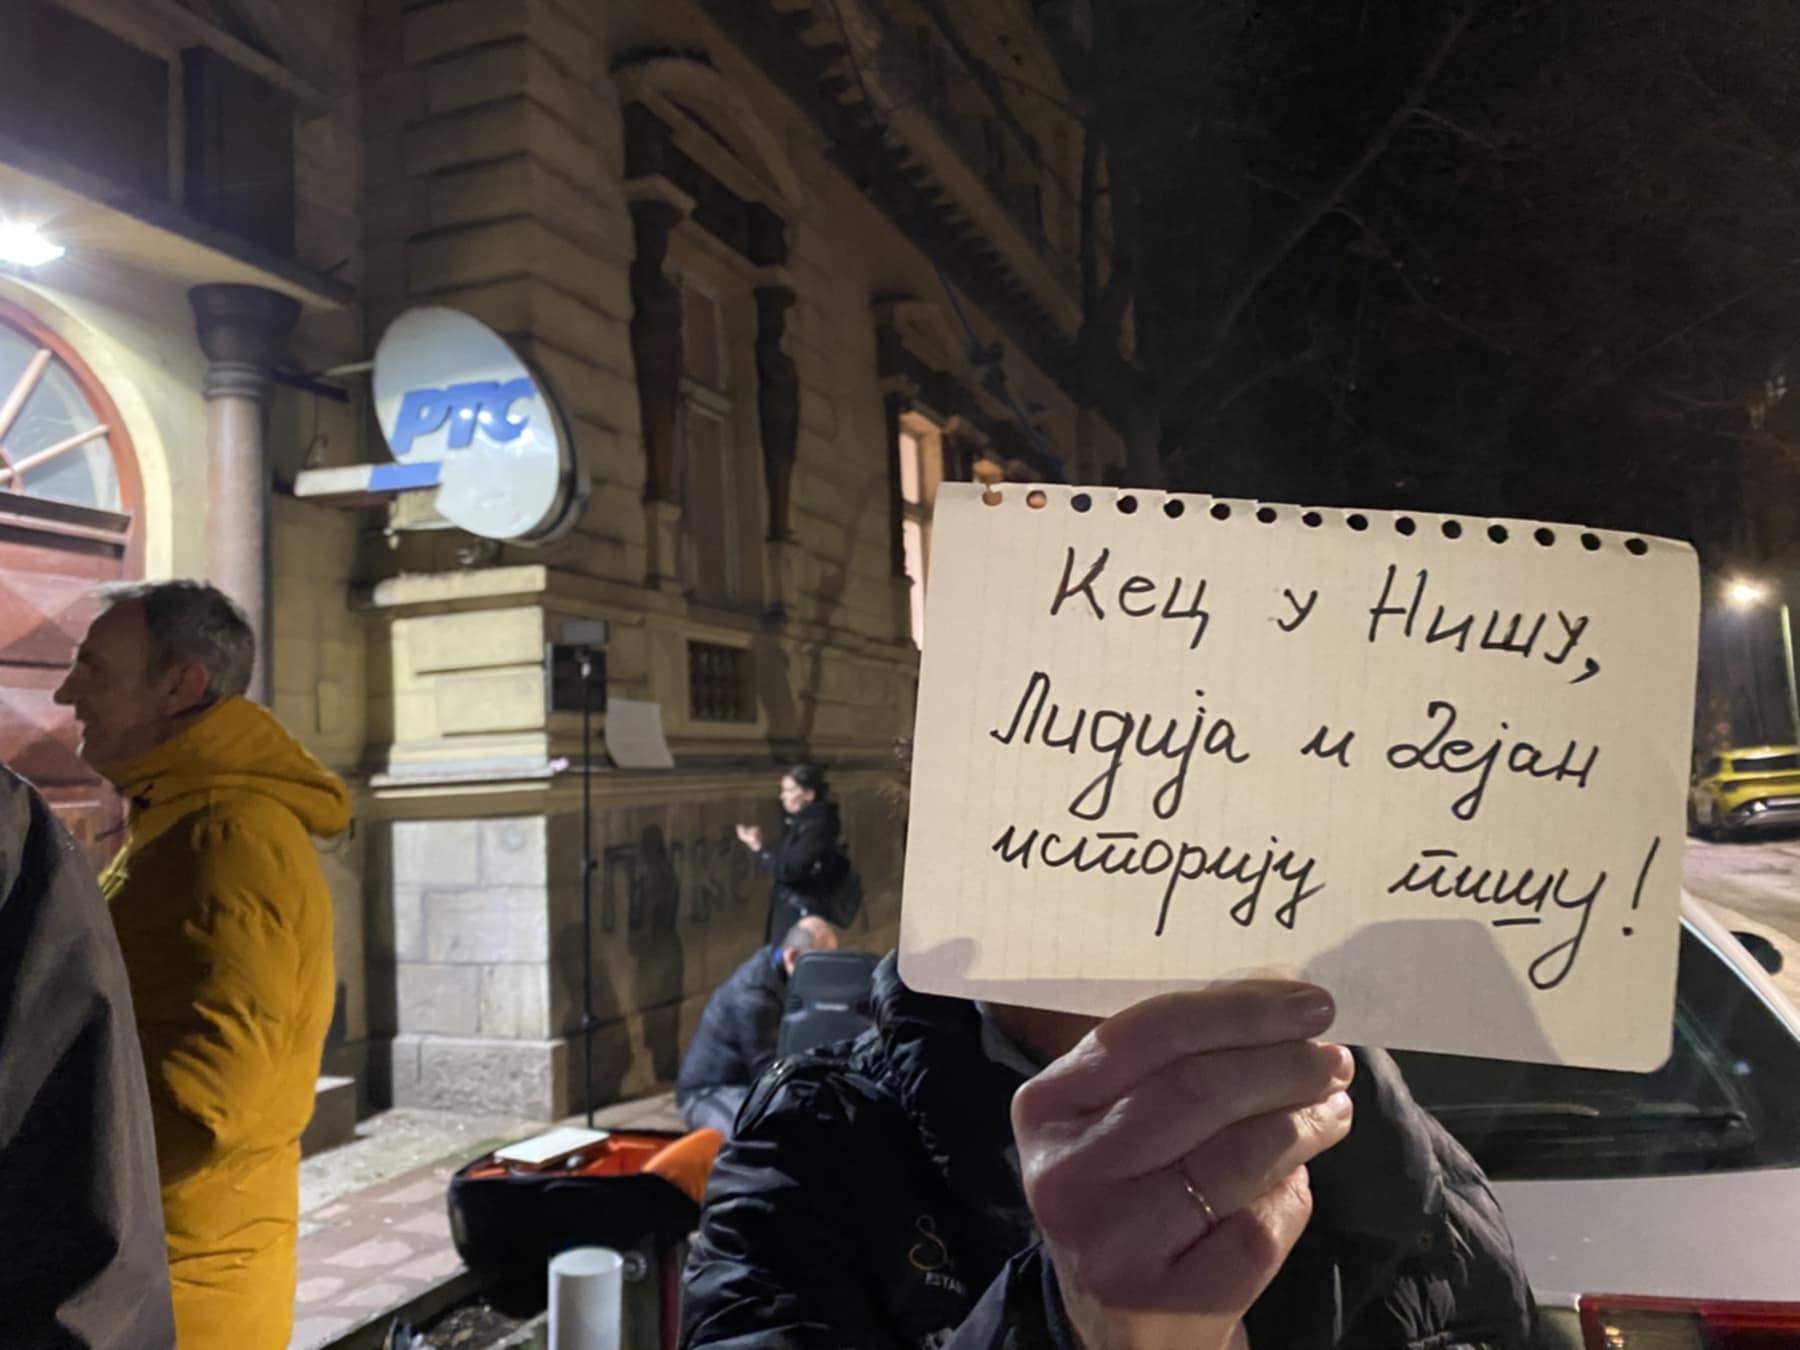 РТС
Кец у Нишу,
Лидија и Дејан
историју пишу!